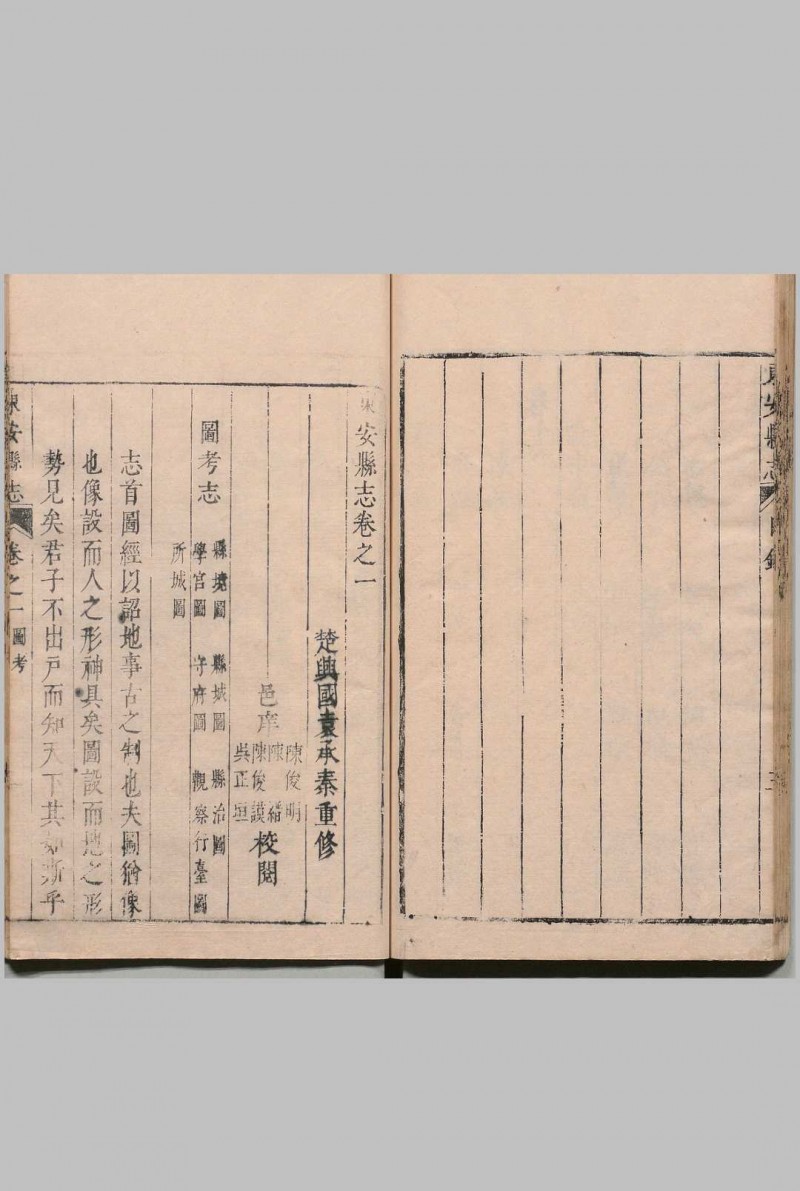 東安縣志 目錄 三
東安縣志卷之一
楚興國袁承泰重修
邑庠
陳俊明
陳縉
陳俊謨
吳正垣
校閱
圖考志
縣境圖 縣城圖 縣治圖
學宮圖 守府圖 觀察行臺圖
所城圖
志首圖經以詔地事古之制也夫圖猶像
也像設而人之形神具矣圖設而地之形
勢見矣君子不出戶而知天下其如斯乎
東安縣志 卷之一 圖考